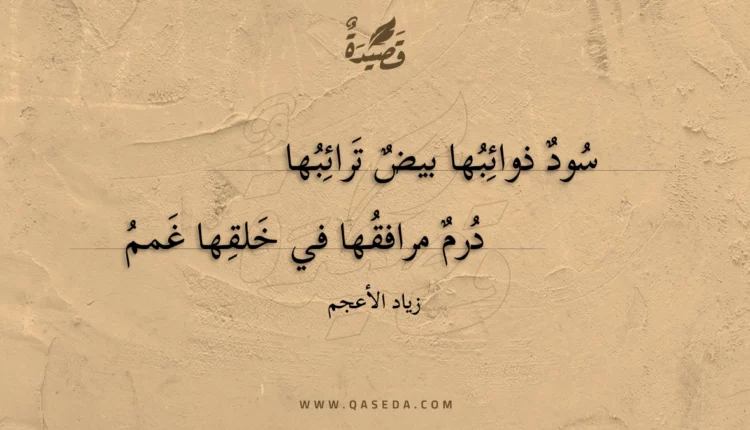 قَصِيدَةٌ
سُودٌ ذوائِبُها بيضٌ تَرائِبُها
دُرمٌ مرافقُها في خَلقِها غَممُ
زياد الأعجم
WWW.QASEDA.COM